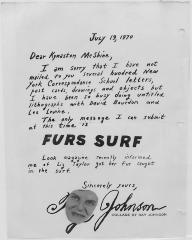 July 19, 1970
Dear Kynaston McShine,
I am sorry that I have not
mailed to you several hundred New
York Correspondence School letters,
post cards, drawings and objects but
I have been so busy doing untitled
lithographs with David Bourdon and
Les Levine.
The only message I can submit
at this time is
FURS SURF
Look magazine recently informed
me of Liz Taylor got her fur caught
in the surf.
Sincerely yours,
Johnson
COLLAGE BY RAY JOHNSON